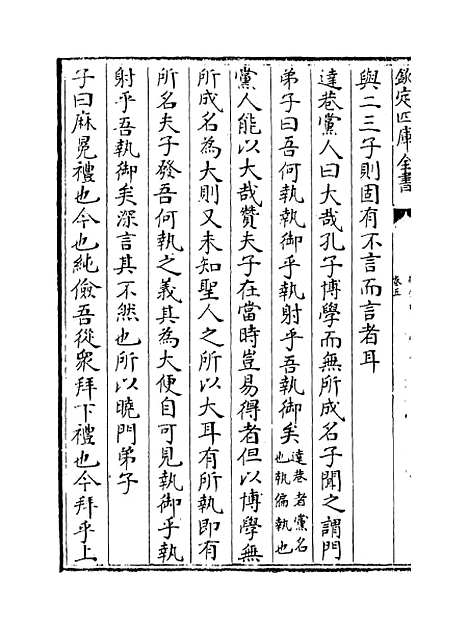 欽定四庫全書
卷五
與二三子則固有不言而言者耳
達巷黨人曰大哉孔子博學而無所成名子聞之謂門
弟子曰吾何執執御乎執射乎吾執御矣達巷者黨名也執偏執也
黨人能以大哉贊夫子在當時豈易得者但以博學無
所成名為大則又未知聖人之所以大耳有所執即有
所名夫子發吾何執之義其為大便自可見執御乎執
射乎吾執御矣深言其不然也所以曉門弟子
子曰麻冕禮也今也純儉吾從衆拜下禮也今拜乎上